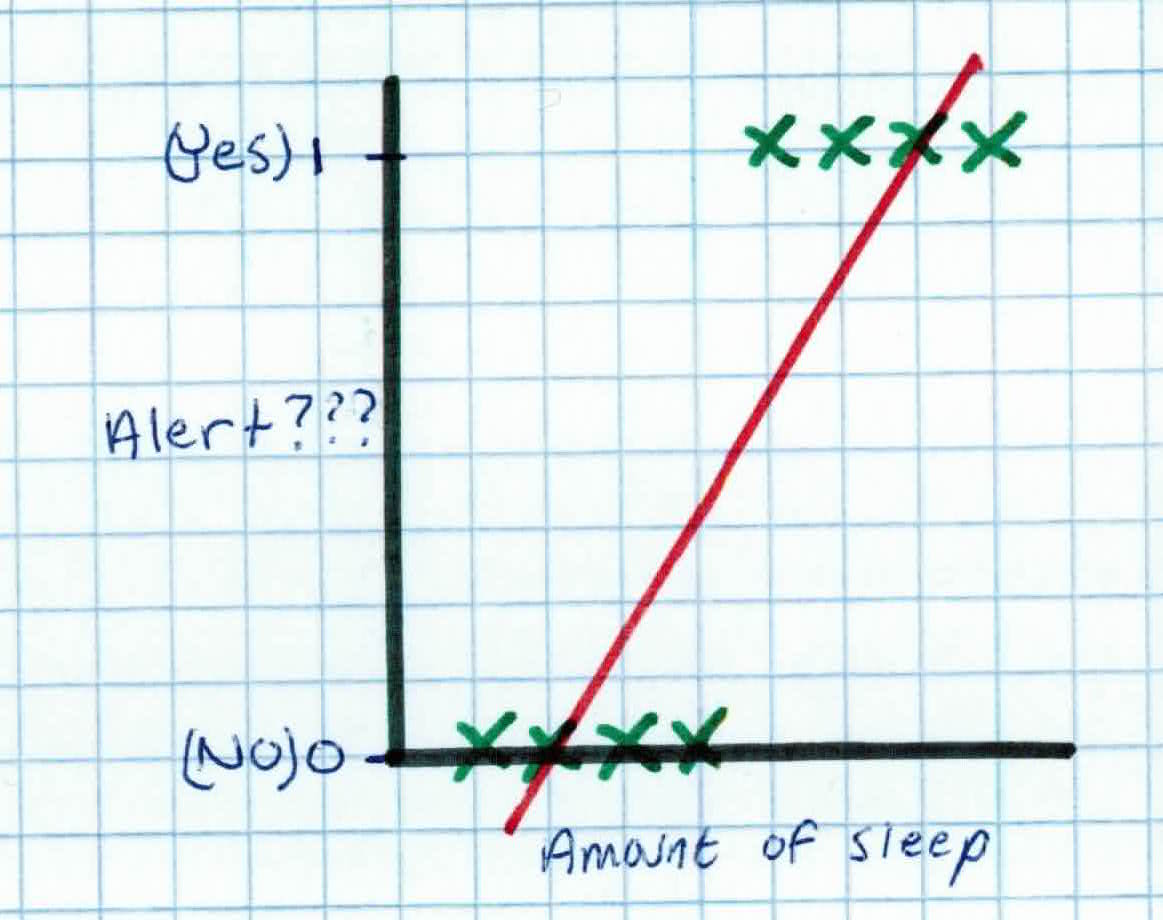 (Yes) 1
Alert???
(NO) 0
Amount of sleep